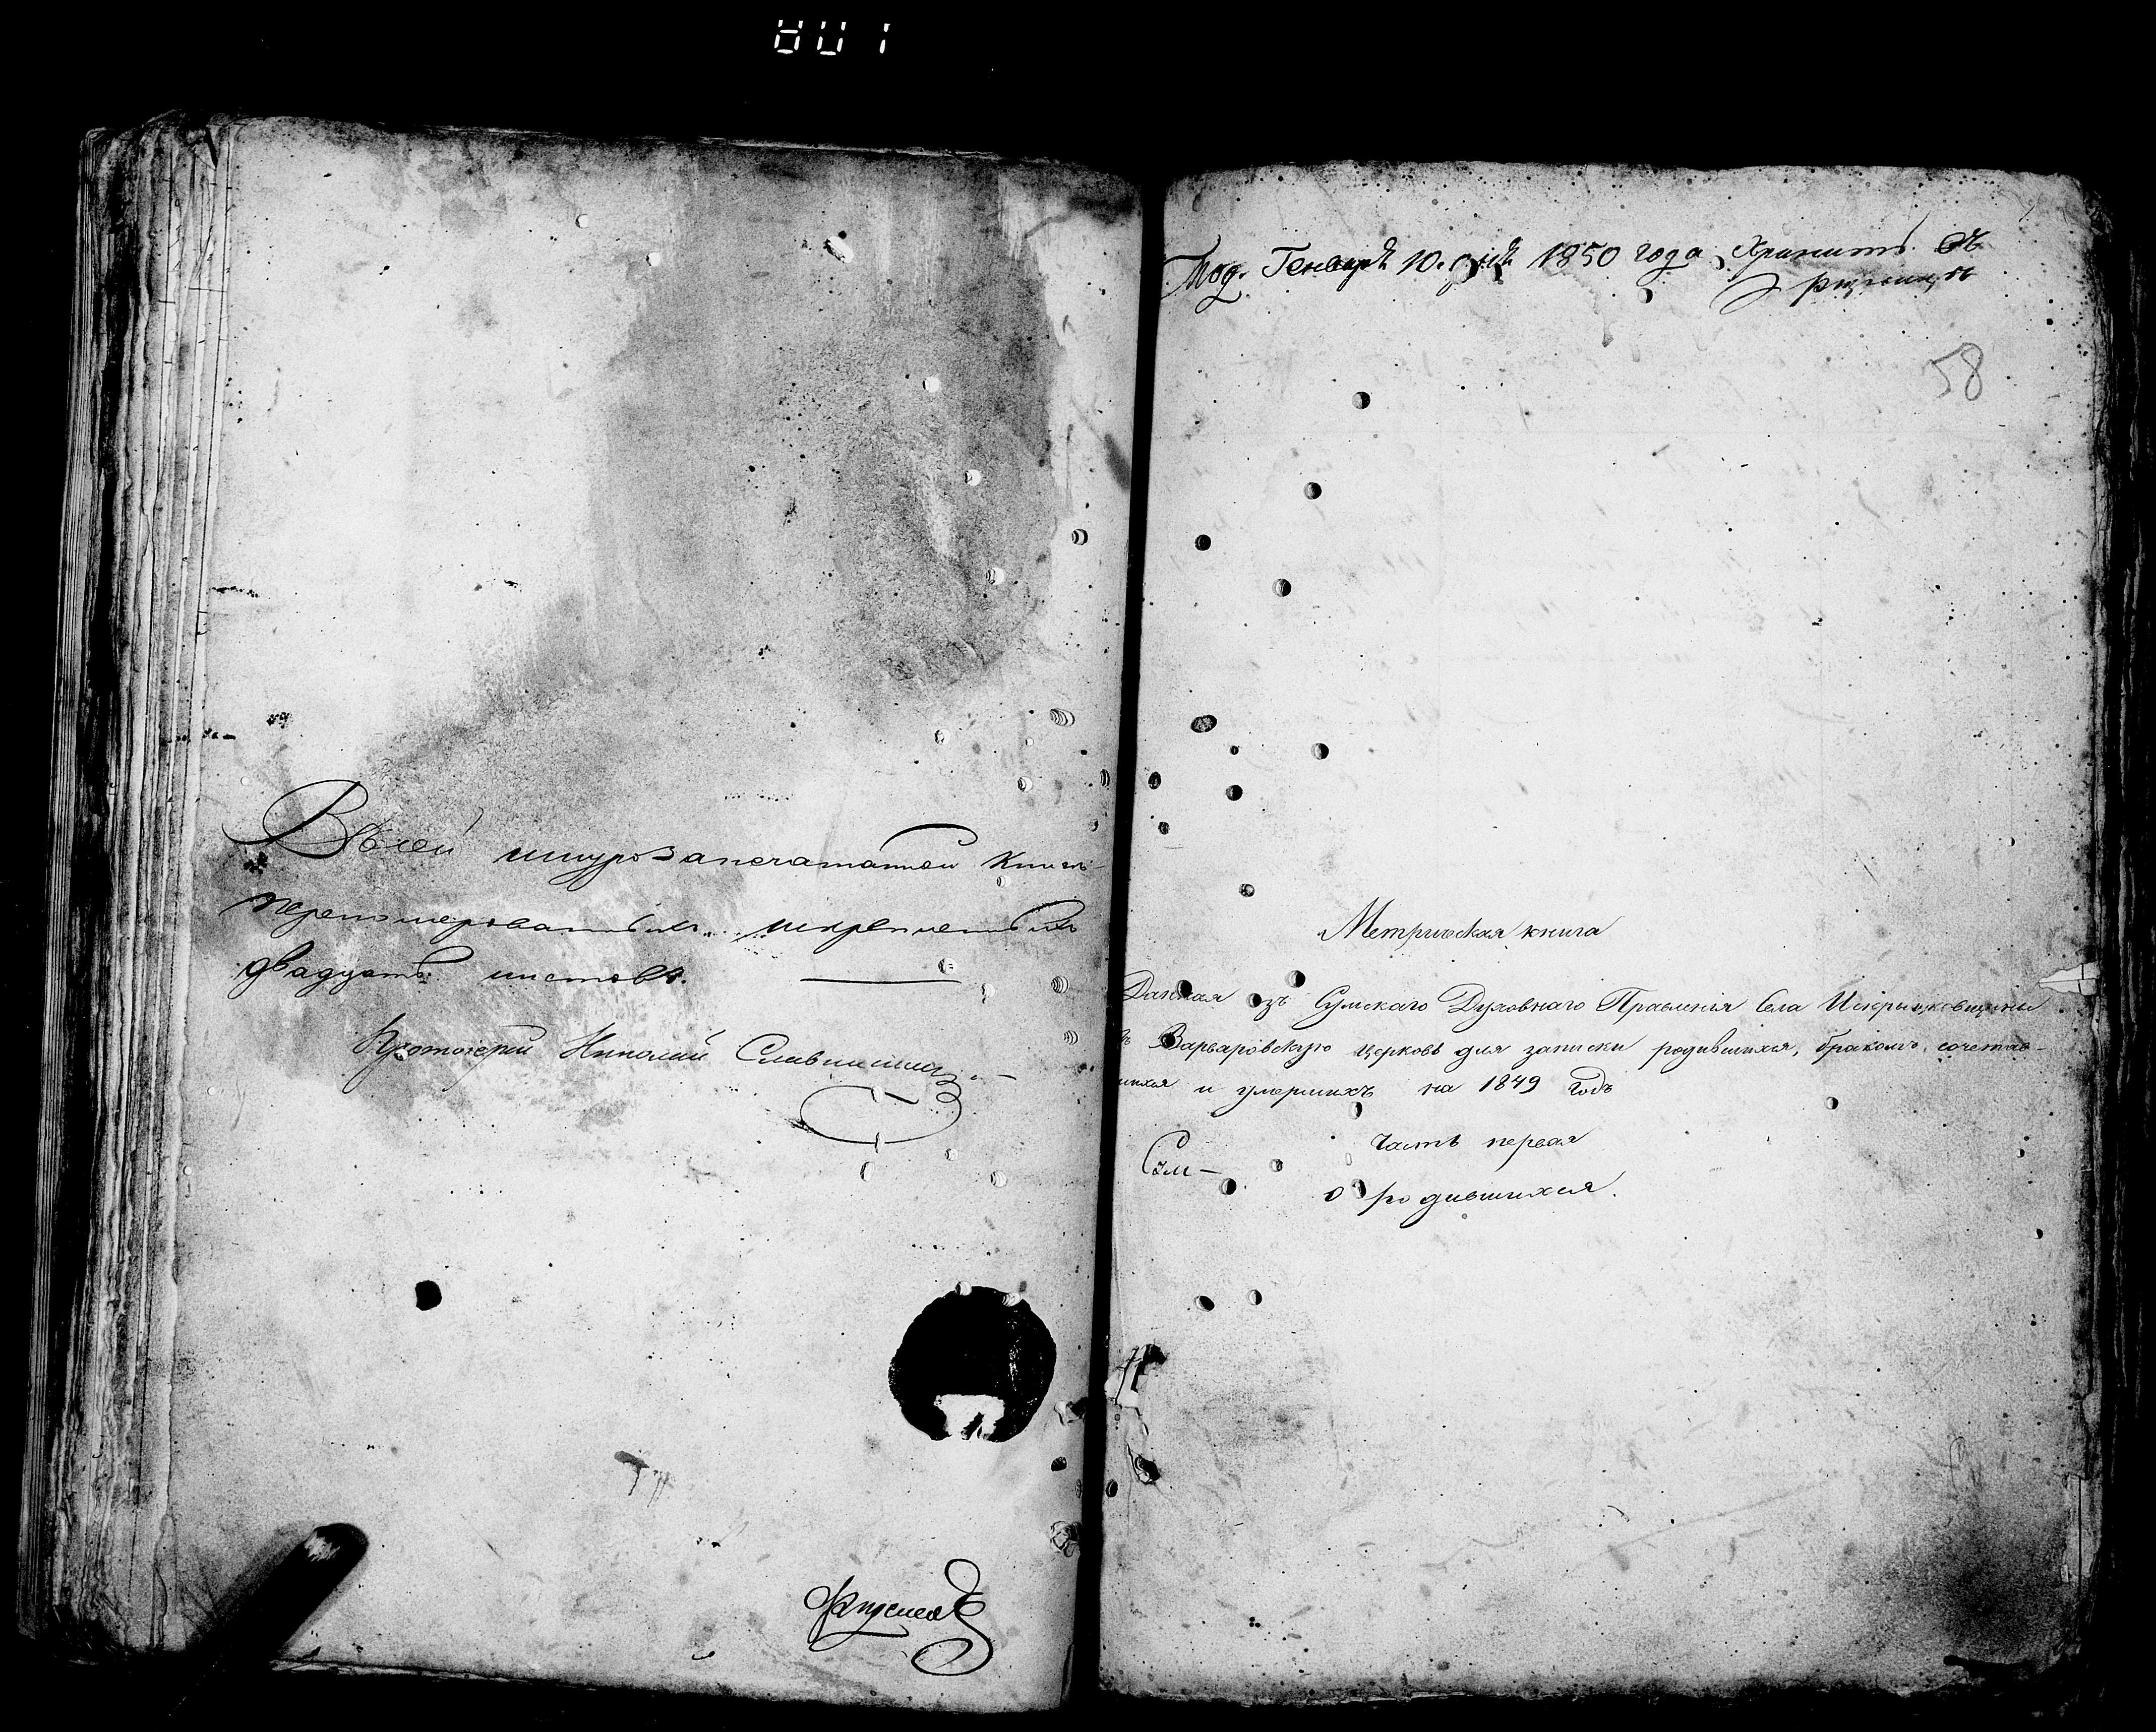 Въ сей шнурозапечатанной Книгѣ
перенумерованныхъ
двадцать листовъ.
Протоіерей Николай
Под. Генваря 10. дня 1850 года Хранить въ
ризницѣ
58
Метрическая книга
Данная изъ Сумскаго Духовнаго Правленія Села Искрысковщины
въ Варваровскую церковь для записки родившихся, бракомъ сочетав-
шихся и умершихъ на 1849 годъ
Часть первая
Сум-
о родившихся.